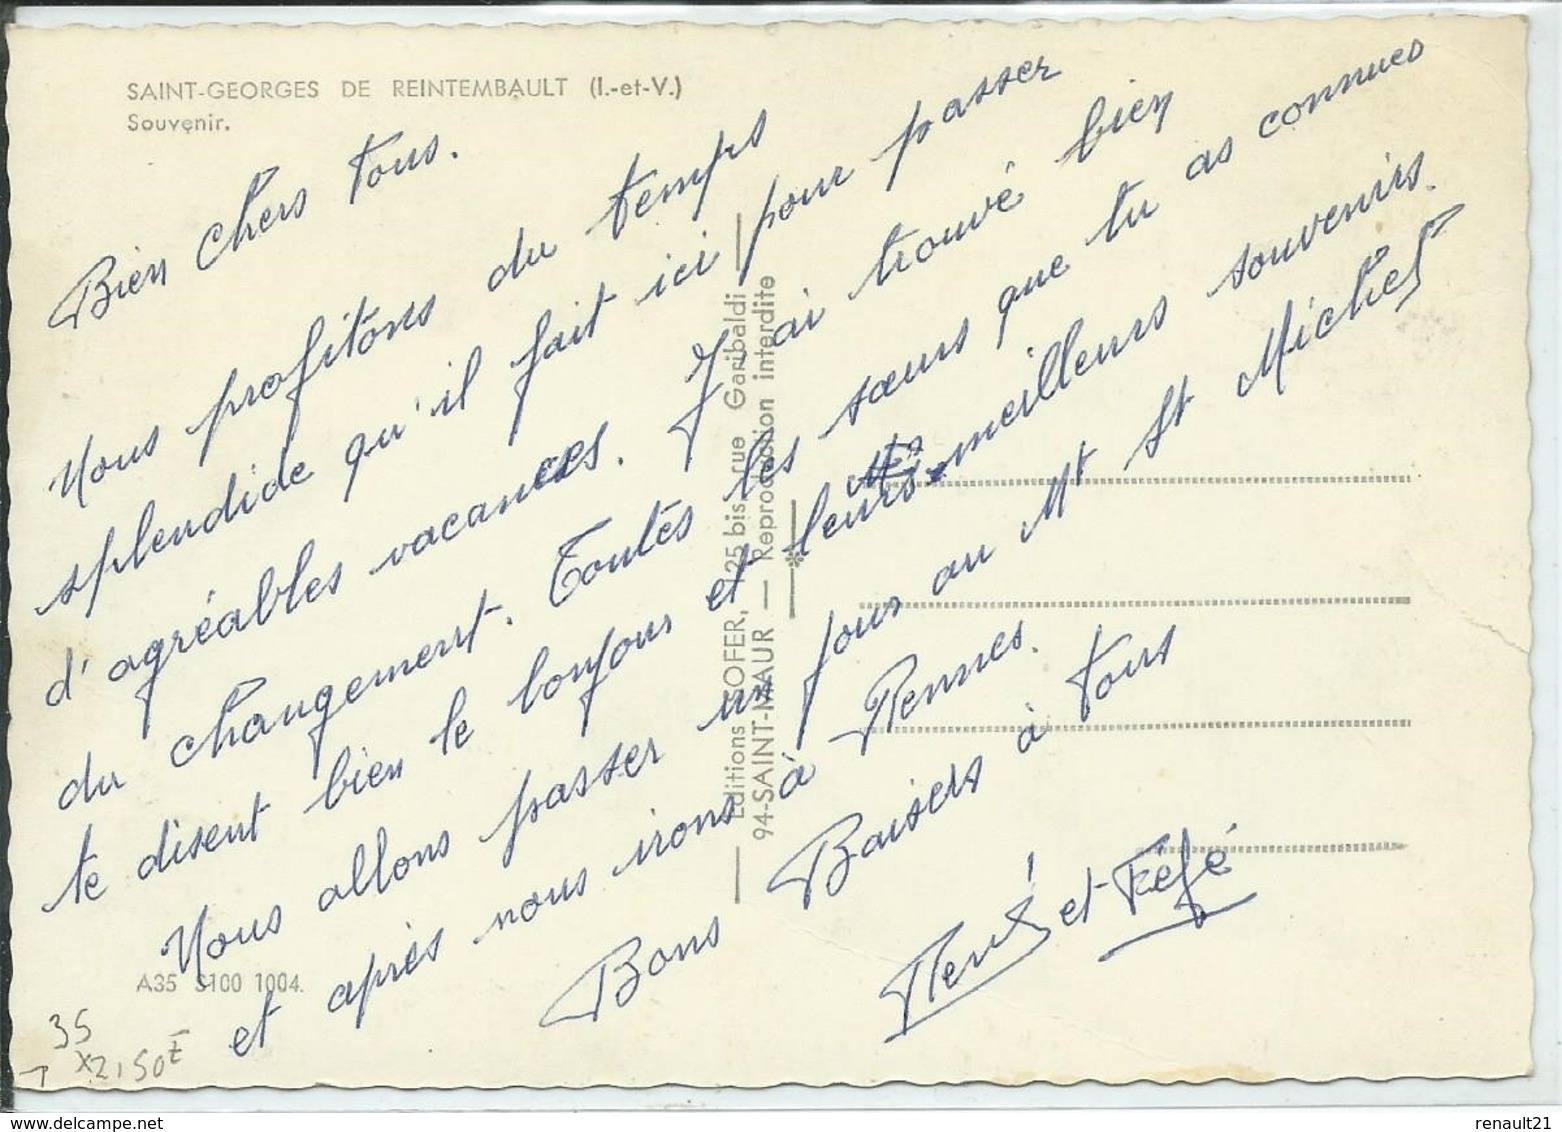 SAINT-GEORGES DE REINTEMBAULT (I.-et-V.)
Souvenir.
Bien chers Tous.
Nous profitons du temps
splendide qu'il fait ici pour passer
d'agréables vacances. J'ai trouvé bien
du changement. Toutes les sœurs que tu as connues
te disent bien le bonjour et leurs meilleurs souvenirs.
Nous allons passer un jour au Mt St Michel
et après nous irons à Rennes.
Bons Baisers à tous
et Féfé
Editions SOFER, 125 bis, rue Garibaldi
94-SAINT-MAUR — Reproduction interdite
A35 S100 1004.
35
x2,50E
renault21
www.delcampe.net